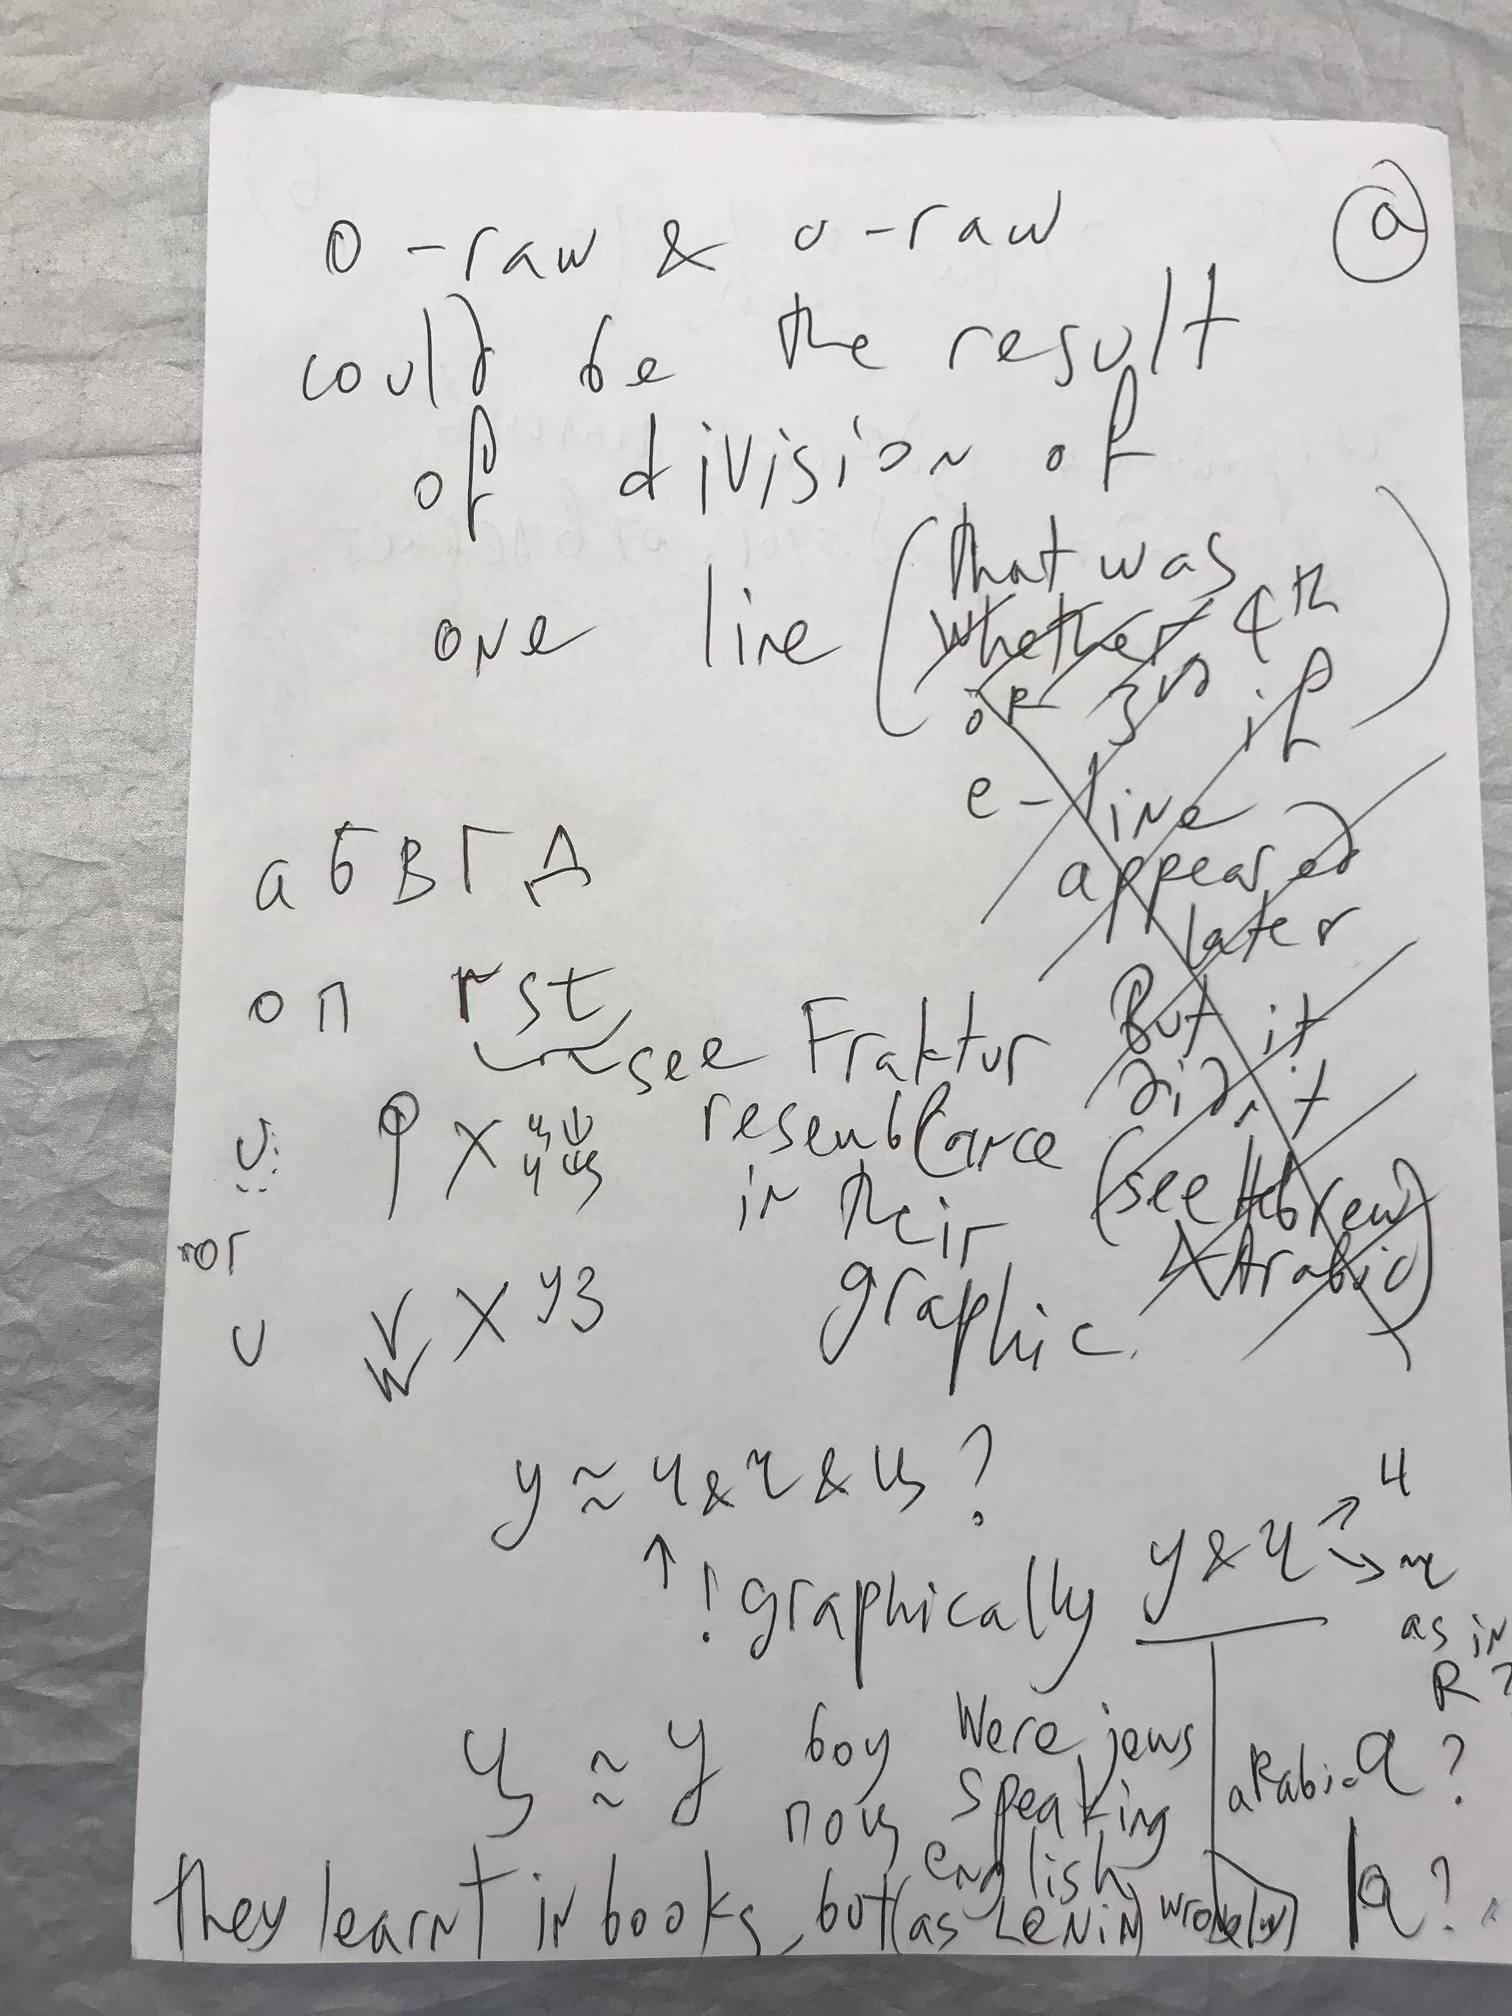 a
o-raw & o-raw
could be the result
of division of
one line (that was
whether 4th
or 3rd if)
e-line
appeared
later
But it
didn't
(see Hebrew
& Arabic)
а б в г д
о п rst
see Fraktur
resemblance
in their
graphic.
υ φ χ
ror
υ v x y з
w
y ≈ ч & г & ц ?
↑ ! graphically y & ч → 4
as in
R?
ц ≈ y boy
поц
Were jews
speaking
english
arabic q ?
they learnt in books, but (as Lenin) q ?